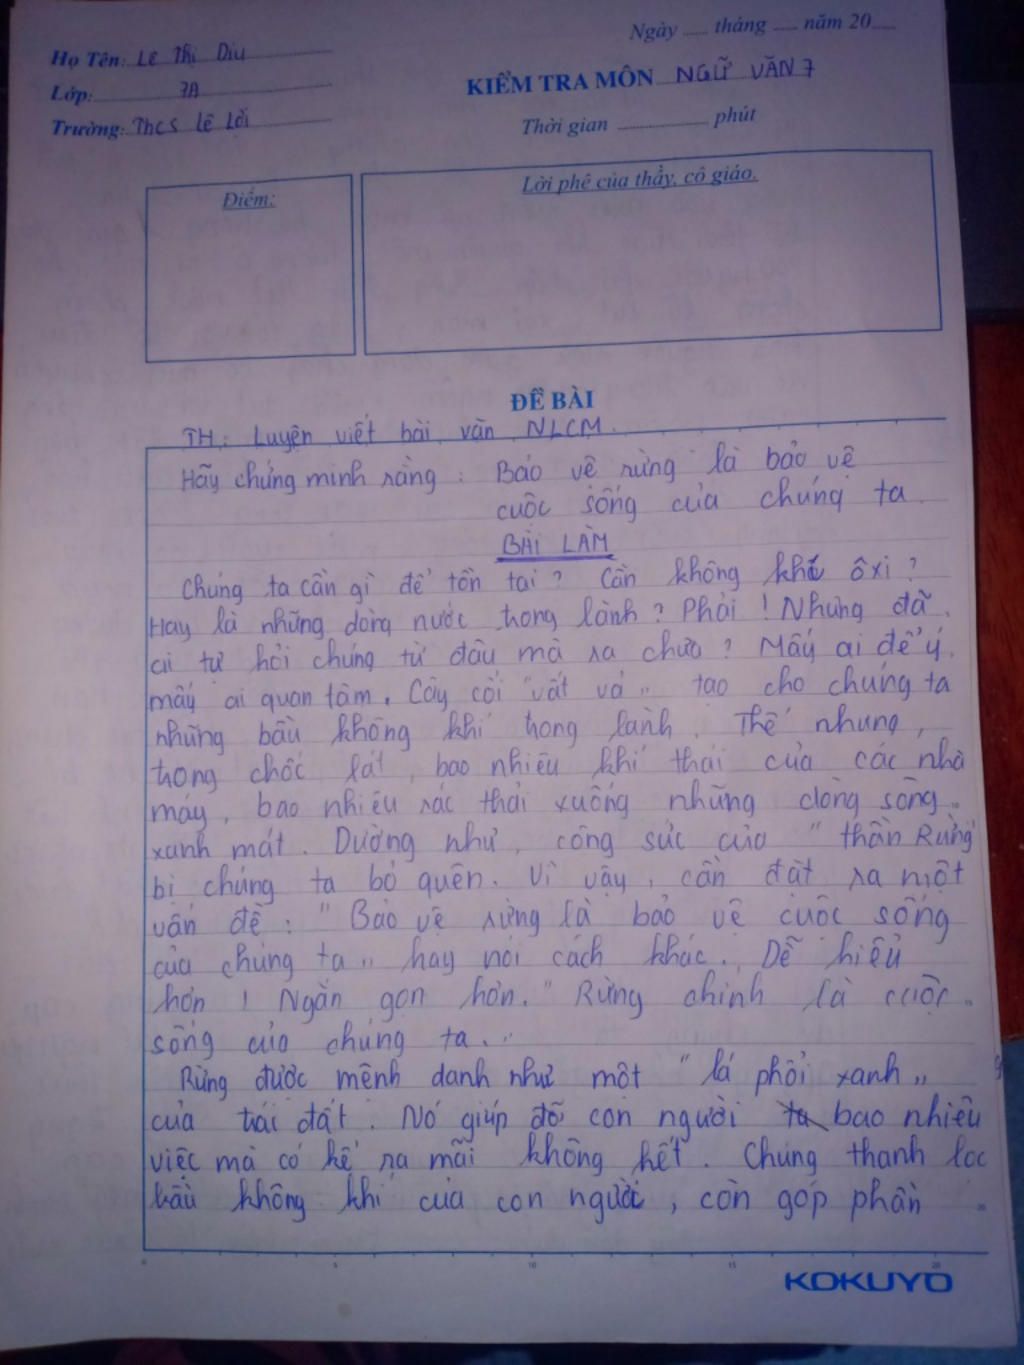 Ngày ..... tháng ..... năm 20.....
Họ Tên: Lê Thị Dịu
Lớp: 7A
KIỂM TRA MÔN NGỮ VĂN 7
Trường: THCS Lê Lợi
Thời gian ............... phút
Điểm:
Lời phê của thầy, cô giáo.
ĐỀ BÀI
TH: Luyện viết bài văn NLCM.
Hãy chứng minh rằng: Bảo vệ rừng là bảo vệ
cuộc sống của chúng ta.
BÀI LÀM
Chúng ta cần gì để tồn tại? Cần không khí ôxi?
Hay là những dòng nước trong lành? Phải! Nhưng đã
ai tự hỏi chúng từ đâu mà ra chưa? Mấy ai để ý,
mấy ai quan tâm. Cây cối "vất vả" tạo cho chúng ta
những bầu không khí trong lành. Thế nhưng,
trong chốc lát, bao nhiêu khí thải của các nhà
máy, bao nhiêu rác thải xuống những dòng sông
xanh mát. Dường như, công sức của "thần Rừng"
bị chúng ta bỏ quên. Vì vậy, cần đặt ra một
vấn đề: "Bảo vệ rừng là bảo vệ cuộc sống
của chúng ta" hay nói cách khác. Dễ hiểu
hơn! Ngắn gọn hơn. "Rừng chính là cuộc
sống của chúng ta."
Rừng được mệnh danh như một "lá phổi xanh"
của trái đất. Nó giúp đỡ con người bao nhiêu
việc mà có kể ra mãi không hết. Chúng thanh lọc
bầu không khí của con người, còn góp phần
KOKUYO